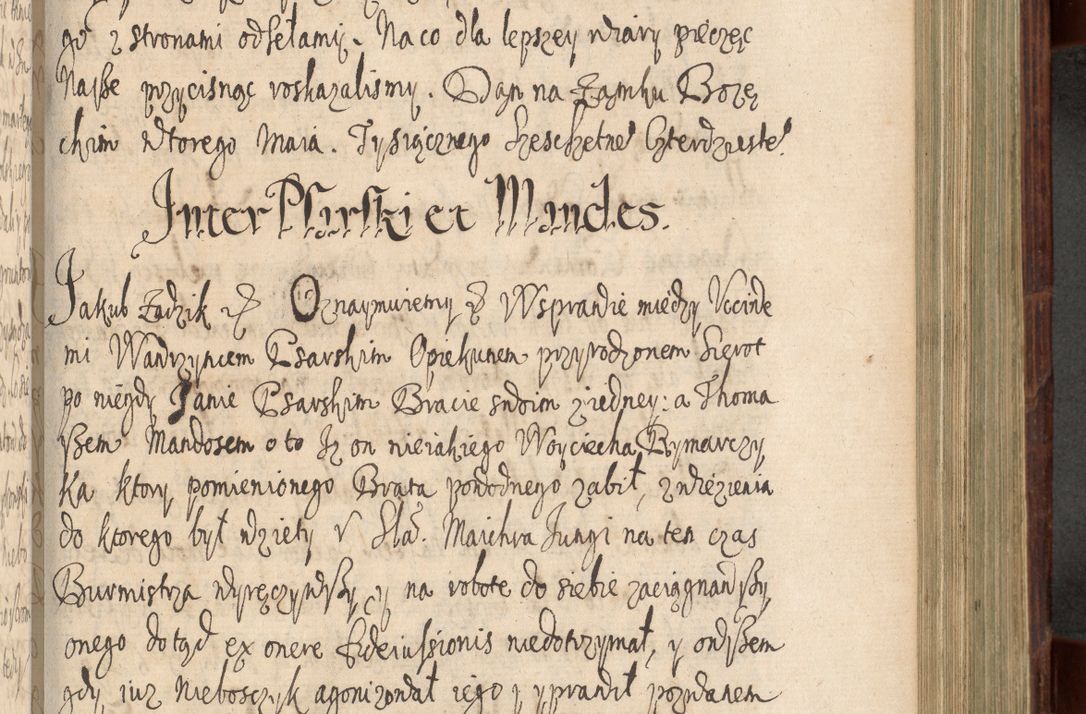 go z stronami odsełamy. Na co dla lepszey wiary pieczęc
Nasze przycisnąc roskazalismy. Dan na Zamku Bozę
ckim wtorego Maia. Tysiącznego szescsetne° Czterdzieste°.
Inter Psarski et Mandes.
Jakub Zadzik etc Oznaymuiemy etc W sprawie między Uccíwe
mi Wawrzyncem Psarskim Opiekunem przyrodzonem Sierot
po niegdy Janie Psarskim Bracie swoim z iedney: a Thoma
szem Mandosem o to Iz on nieiakiego Woyciecha Rymarczy
ka ktory pomienionego Brata powodnego zabił, z więzienia
do ktorego był wzięty v Sła. Maichra Jungi na ten czas
Burmistrza wyręczywszy, y na robote do siebie zaciągnąwszy,
onego do tąd ex onere fideiussionis niedotrzymał, y owszem
gdy iuz Nieboszczyk agonizował iego y wyprawił pozwanem